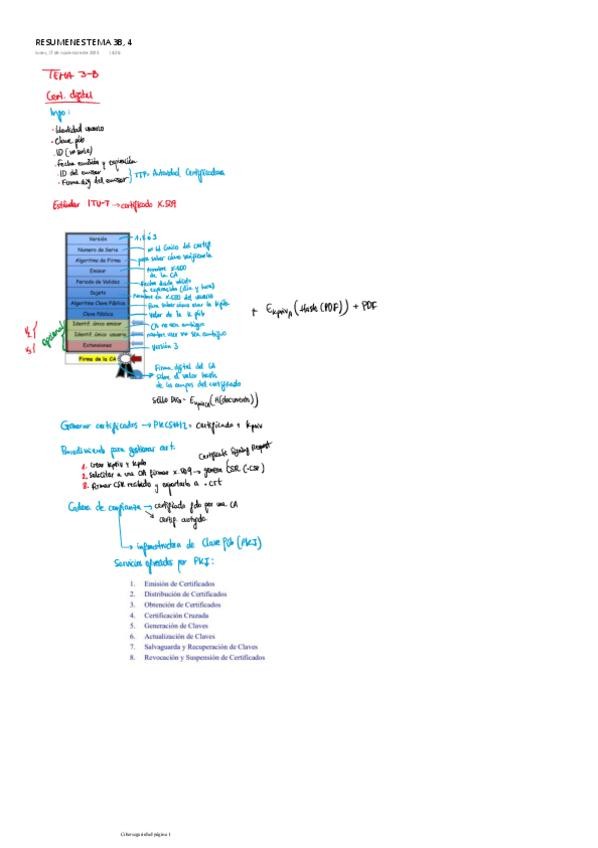 RESUMENES TEMA 3B, 4
lunes, 17 de noviembre de 2025
TEMA 3-B
Cert. digital
Info:
- Identidad usuario
- Clave púb
- ID (nº serie)
- Fecha emisión y expiración
- ID del emisor
- Forma dig del emisor
TTP: Autoridad Certificadora
Estándar ITU-T → certificado X.509
Versión
1, 2 ó 3
Número de Serie
nº id único del certif
Algoritmo de Firma
para saber cómo verificarla
Emisor
nombre X.500 de la CA
Periodo de Validez
Fecha desde válido a expiración (día y hora)
Sujeto
Nombre en X.500 del usuario
Algoritmo Clave Pública
Para saber cómo usar la kpub
Clave Pública
Valor de la k púb
Identif. único emisor
CA no sea ambiguo
Identif. único usuario
nombre user no sea ambiguo
Extensiones
Versión 3
V2
V3
Opcional
Firma de la CA
Firma digital del CA
sobre el valor hash
de los campos del certificado
Sello DIG = E kprivCA (H(documento))
+ E kprivA (Hash (PDF)) + PDF
Generar certificados → PKCS#12 = certificado + kpriv
Procedimiento para gestionar cert:
Certificate Signing Request
1. Crear kpriv y kpúb
2. Solicitar a una CA firmar X.509 → genera CSR (.CSR)
3. Firmar CSR recibido y exportarlo a .crt
Cadena de confianza → certificado fdo por una CA
certif. cruzado
→ infraestructura de Clave Púb (PKI)
Servicios ofrecidos por PKI:
1. Emisión de Certificados
2. Distribución de Certificados
3. Obtención de Certificados
4. Certificación Cruzada
5. Generación de Claves
6. Actualización de Claves
7. Salvaguarda y Recuperación de Claves
8. Revocación y Suspensión de Certificados
Ciberseguridad página 1